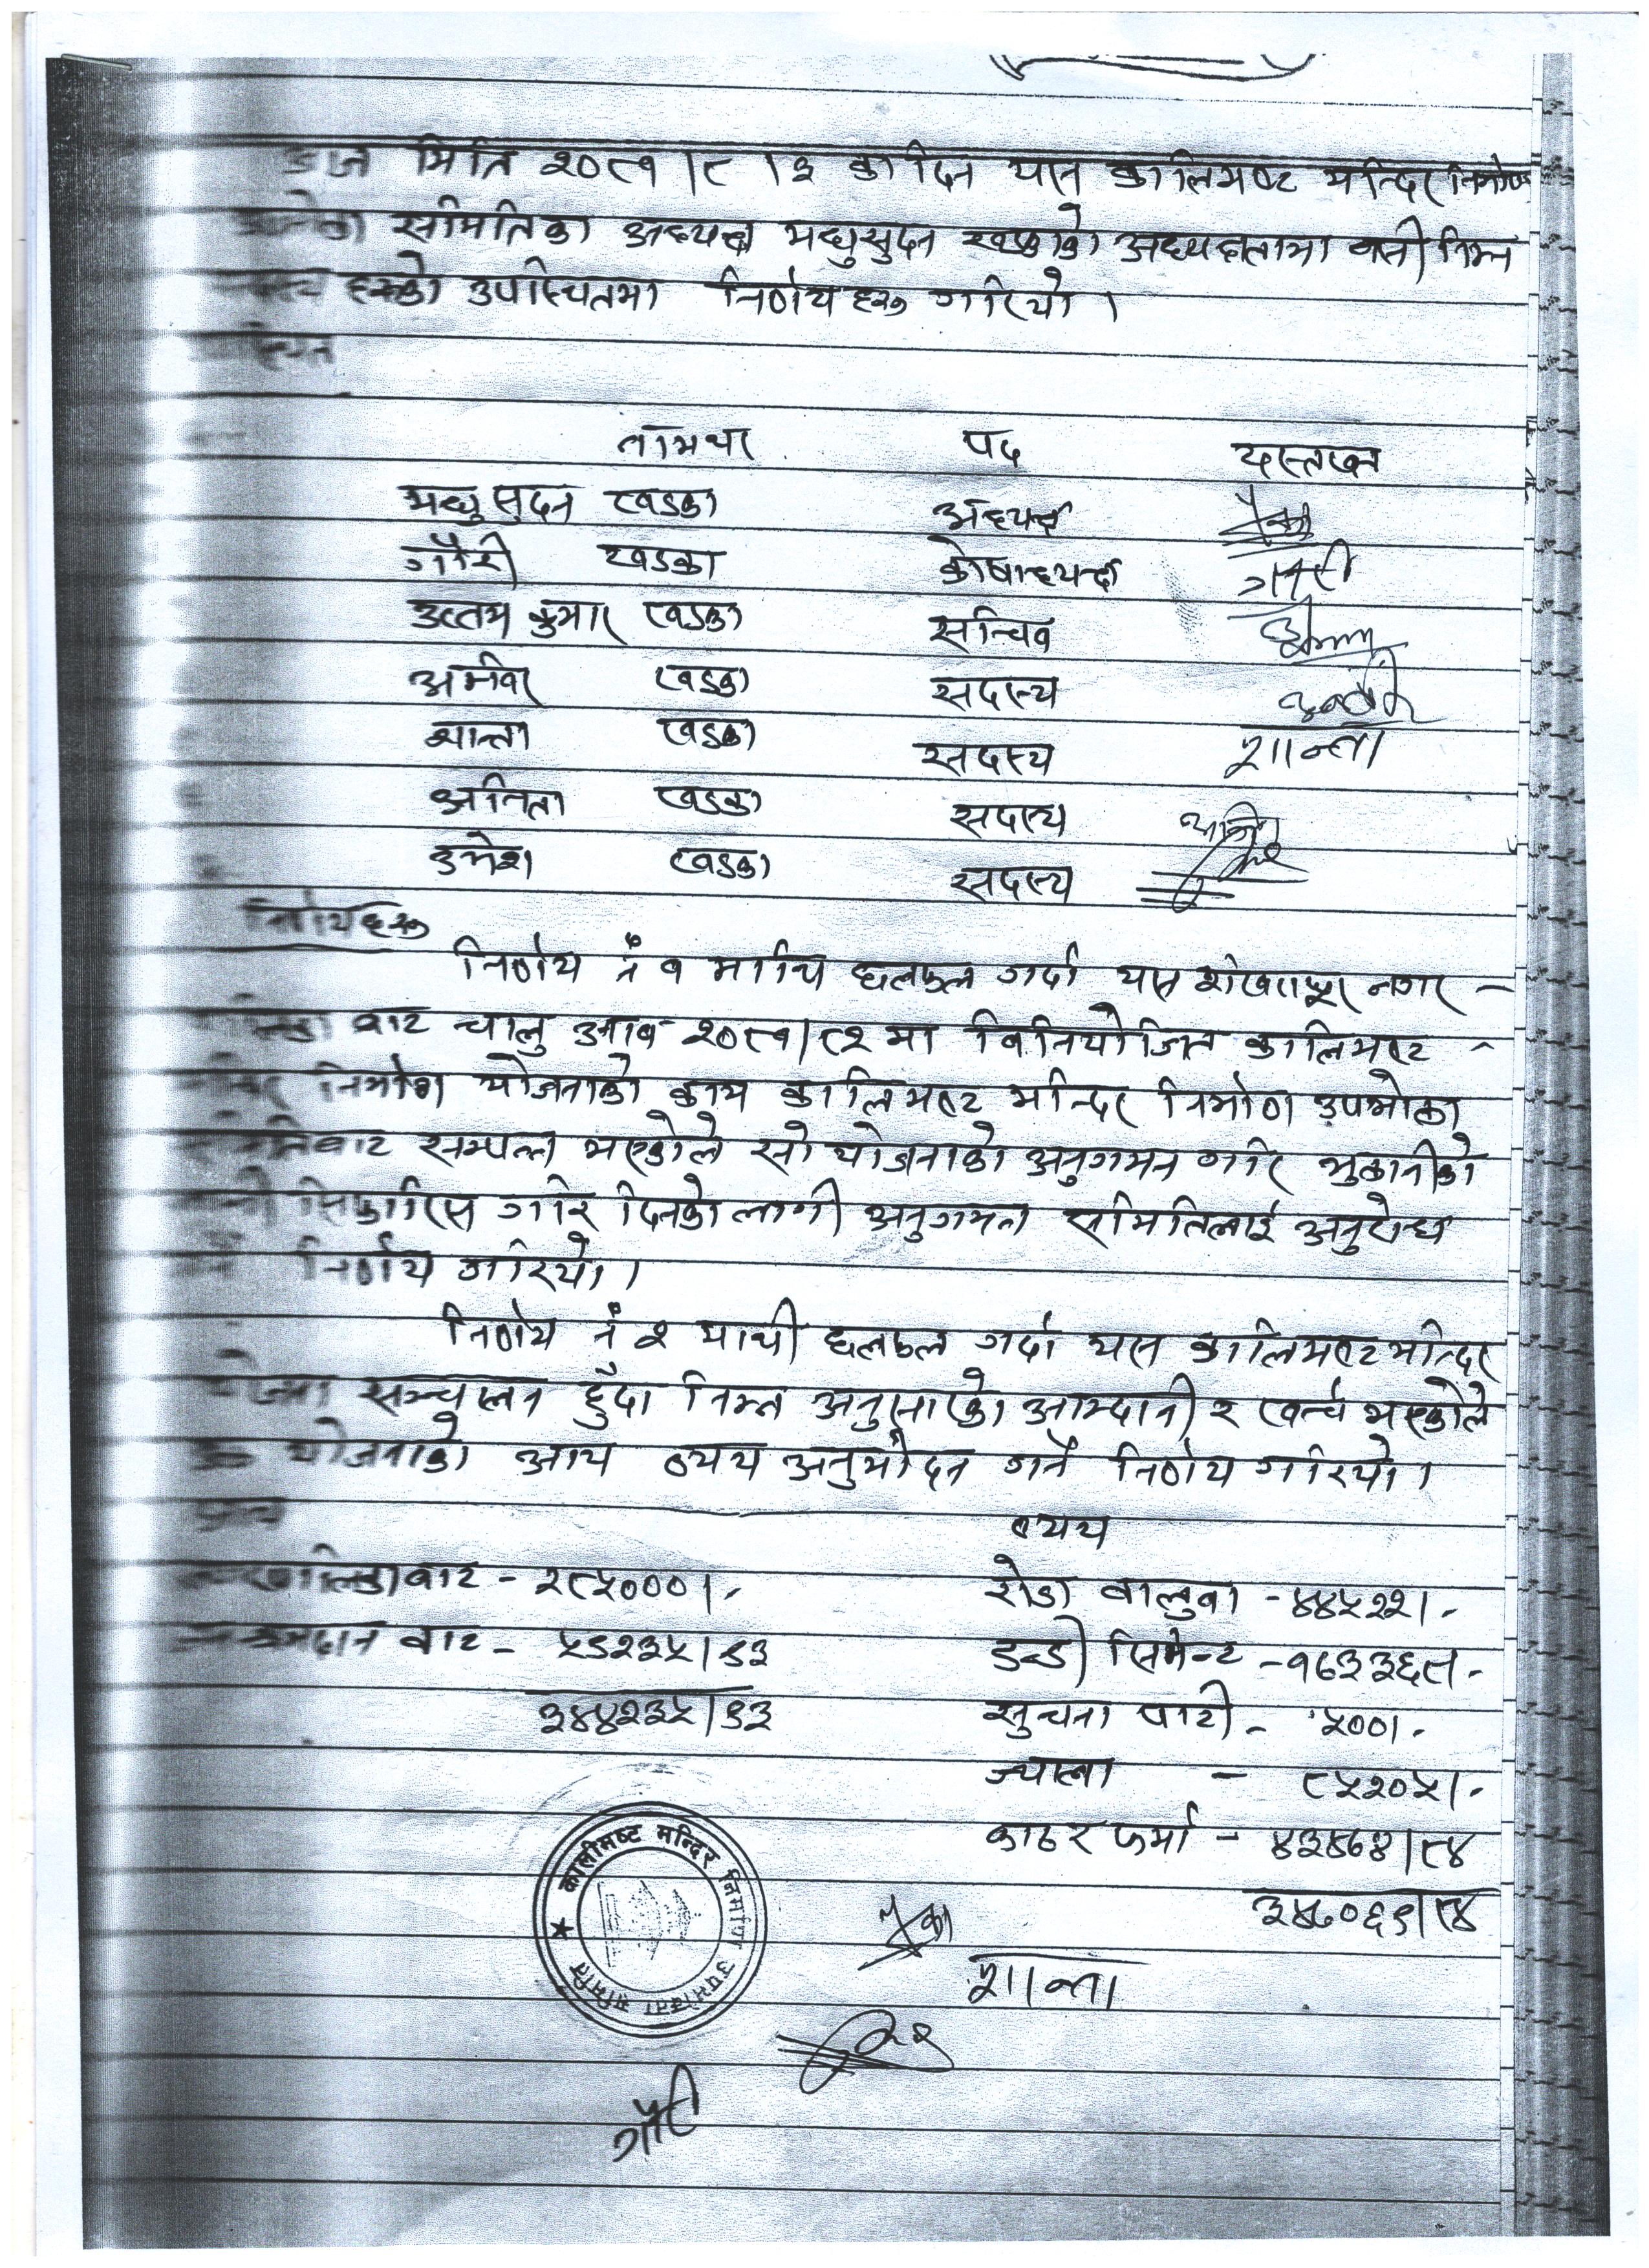 मिति २०८१।८।३ का दिन यस कालिमष्ट मन्दिर निर्माण
समितिका अध्यक्ष मधुसुदन खड्काको अध्यक्षतामा वसी निम्न
हरुको उपस्थितमा निर्णय हरु गरियो।
नामथर पद दस्तखत
मधुसुदन खडका अध्यक्ष
गौरी खडका कोषाध्यक्ष गौरी
उत्तम कुमार खडका सचिव
अमविर खडका सदस्य
शान्ता खडका सदस्य शान्ता
अनिता खडका सदस्य
उमेश खडका सदस्य
निर्णयहरु
निर्णय नं १ माथि छलफल गर्दा यस शंखरापुर नगर -
वाट चालु आ.व २०८१/८२ मा विनियोजित कालिमष्ट -
निर्माण योजनाको काम कालिमष्ट मन्दिर निर्माण उपभोक्ता
वाट सम्पन्न भएकोले सो योजनाको अनुगमन गरि भुक्तानीको
सिफारिस गरि दिनको लागी अनुगमन समितिलाई अनुरोध
निर्णय गरियो।
निर्णय नं २ माथी छलफल गर्दा यस कालिमष्ट मन्दिर
सञ्चालन हुँदा निम्न अनुसारको आम्दानी र खर्च भएकोले
योजनाको आय व्यय अनुमोदन गर्ने निर्णय गरियो।
व्यय
वाट - २८५०००।- रोडा वालुवा - ४४५२२।-
वाट - ५९२३५।९३ डण्डी सिमेन्ट - १७३३६८।-
३४४२३५।९३ सुचना पाटी - ५००।-
ज्याला - ८५२०५।-
काठ र फर्मा - ४३४७४।८४
३४७०६९।८४
कालीमष्ट मन्दिर निर्माण उपभोक्ता समिति
शान्ता
गौरी